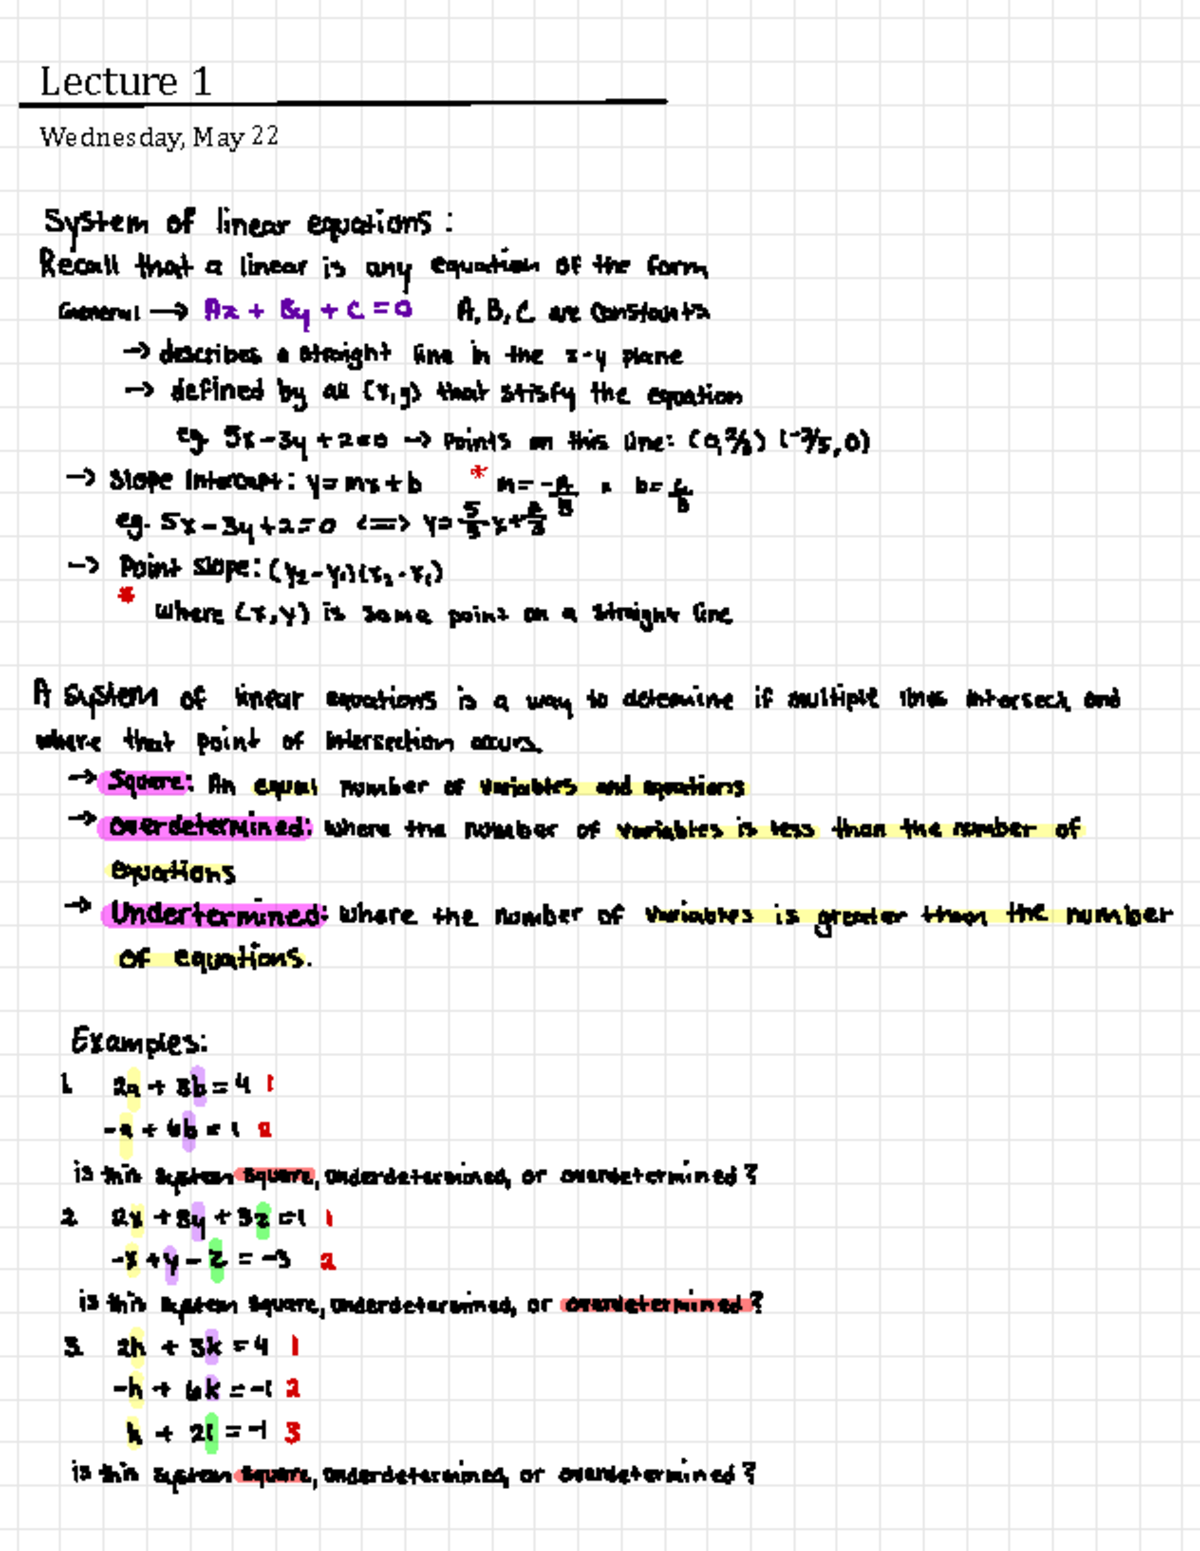 Lecture 1
Wednesday, May 22
System of linear equations :
Recall that a linear is any equation of the form
General → Ax + By + C = 0 A, B, C are constants
→ describes a straight line in the x-y plane
→ defined by all (x,y) that satisfy the equation
eg. 5x-3y+2=0 → Points on this line: (0,2/3) (-2/5,0)
→ Slope Intercept: y=mx+b * m=-A/B
eg. 5x-3y+2=0 <=> y=5/3x+2/3
→ Point slope: (y₂-y₁)(x₂-x₁)
* where (x,y) is some point on a straight line
A system of linear equations is a way to determine if multiple lines intersect, and
where that point of intersection occurs.
→ Square: An equal number of variables and equations
→ overdetermined: where the number of variables is less than the number of
equations
→ Undertermined: where the number of variables is greater than the number
of equations.
Examples:
1. 2a + 3b = 4 1
-a + 6b = 1 2
is this system square, underdetermined, or overdetermined?
2. 2x + 3y + 3z = 1 1
-x + y - z = -3 2
is this system square, underdetermined, or overdetermined?
3. 2h + 3k = 4 1
-h + 6k = -1 2
h + 2l = -1 3
is this system square, underdetermined, or overdetermined?